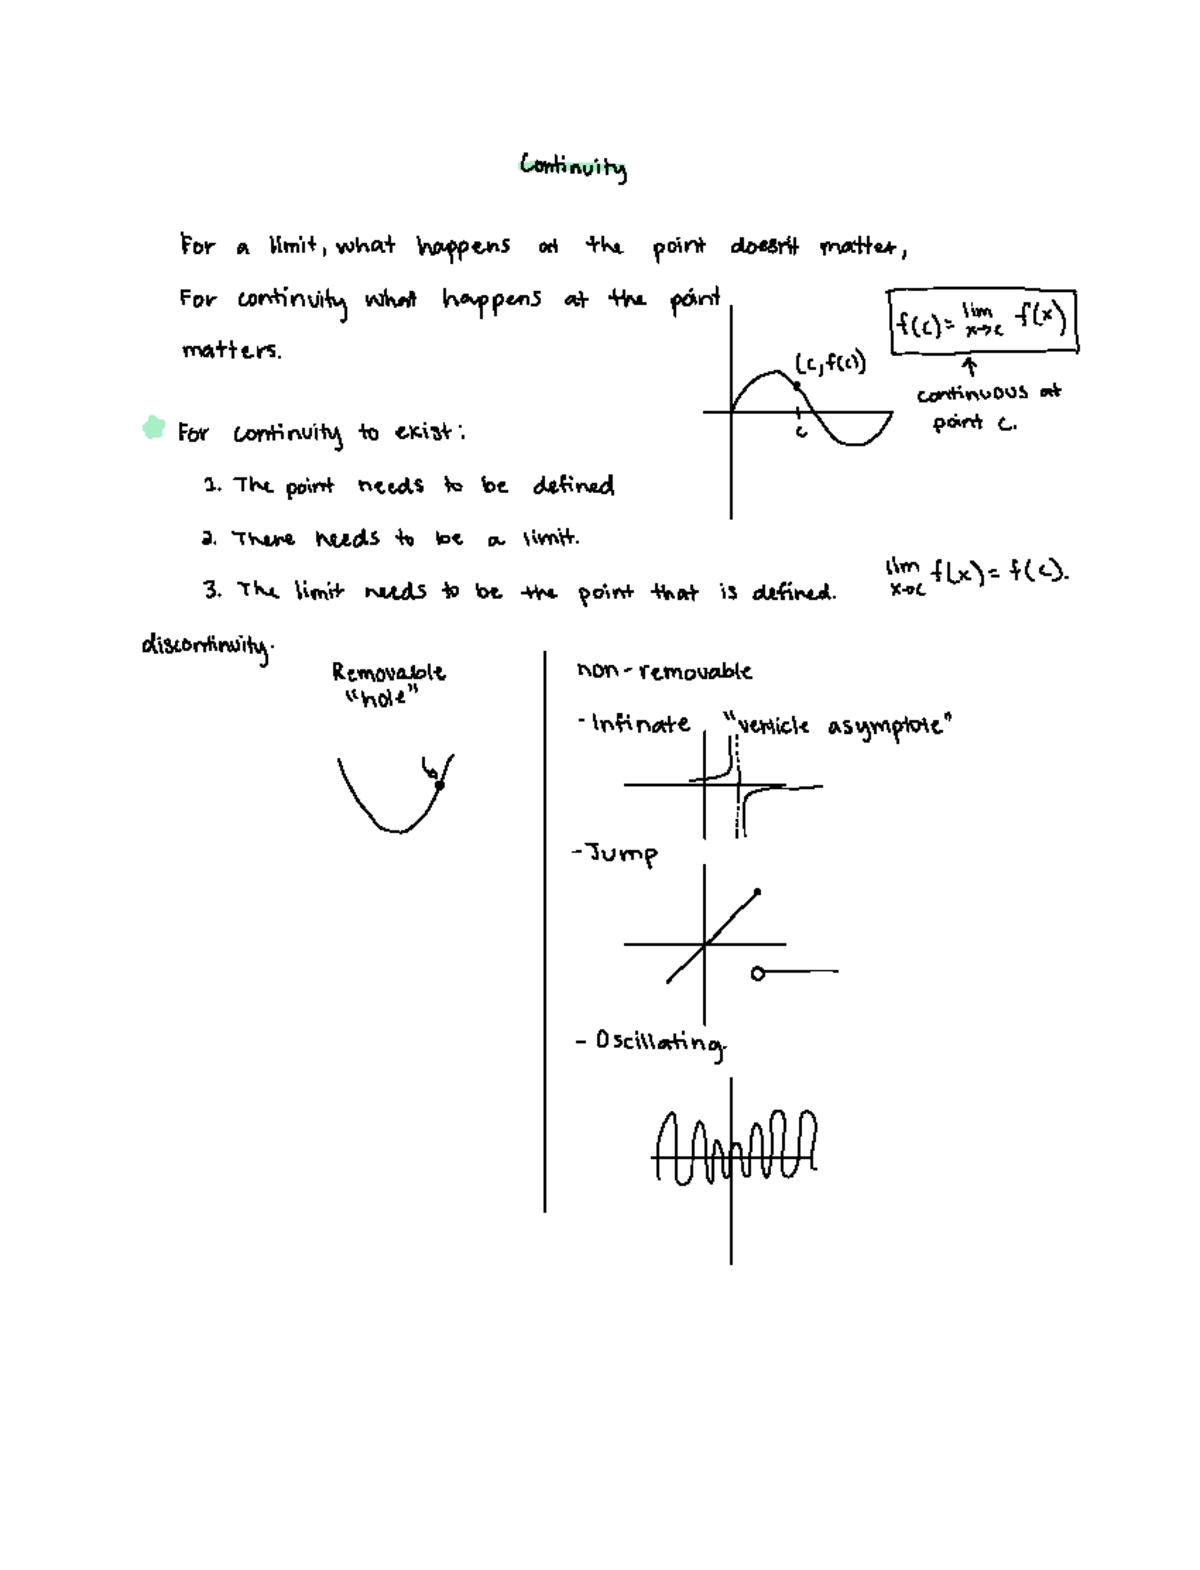 Continuity
For a limit, what happens at the point doesn't matter,
For continuity what happens at the point
matters.
f(c) = lim x→c f(x)
(c, f(c))
c
continuous at
point c.
For continuity to exist:
1. The point needs to be defined
2. There needs to be a limit.
3. The limit needs to be the point that is defined. lim x→c f(x) = f(c).
discontinuity.
Removable
"hole"
non-removable
- Infinate "verticle asymptote"
- Jump
- Oscillating.